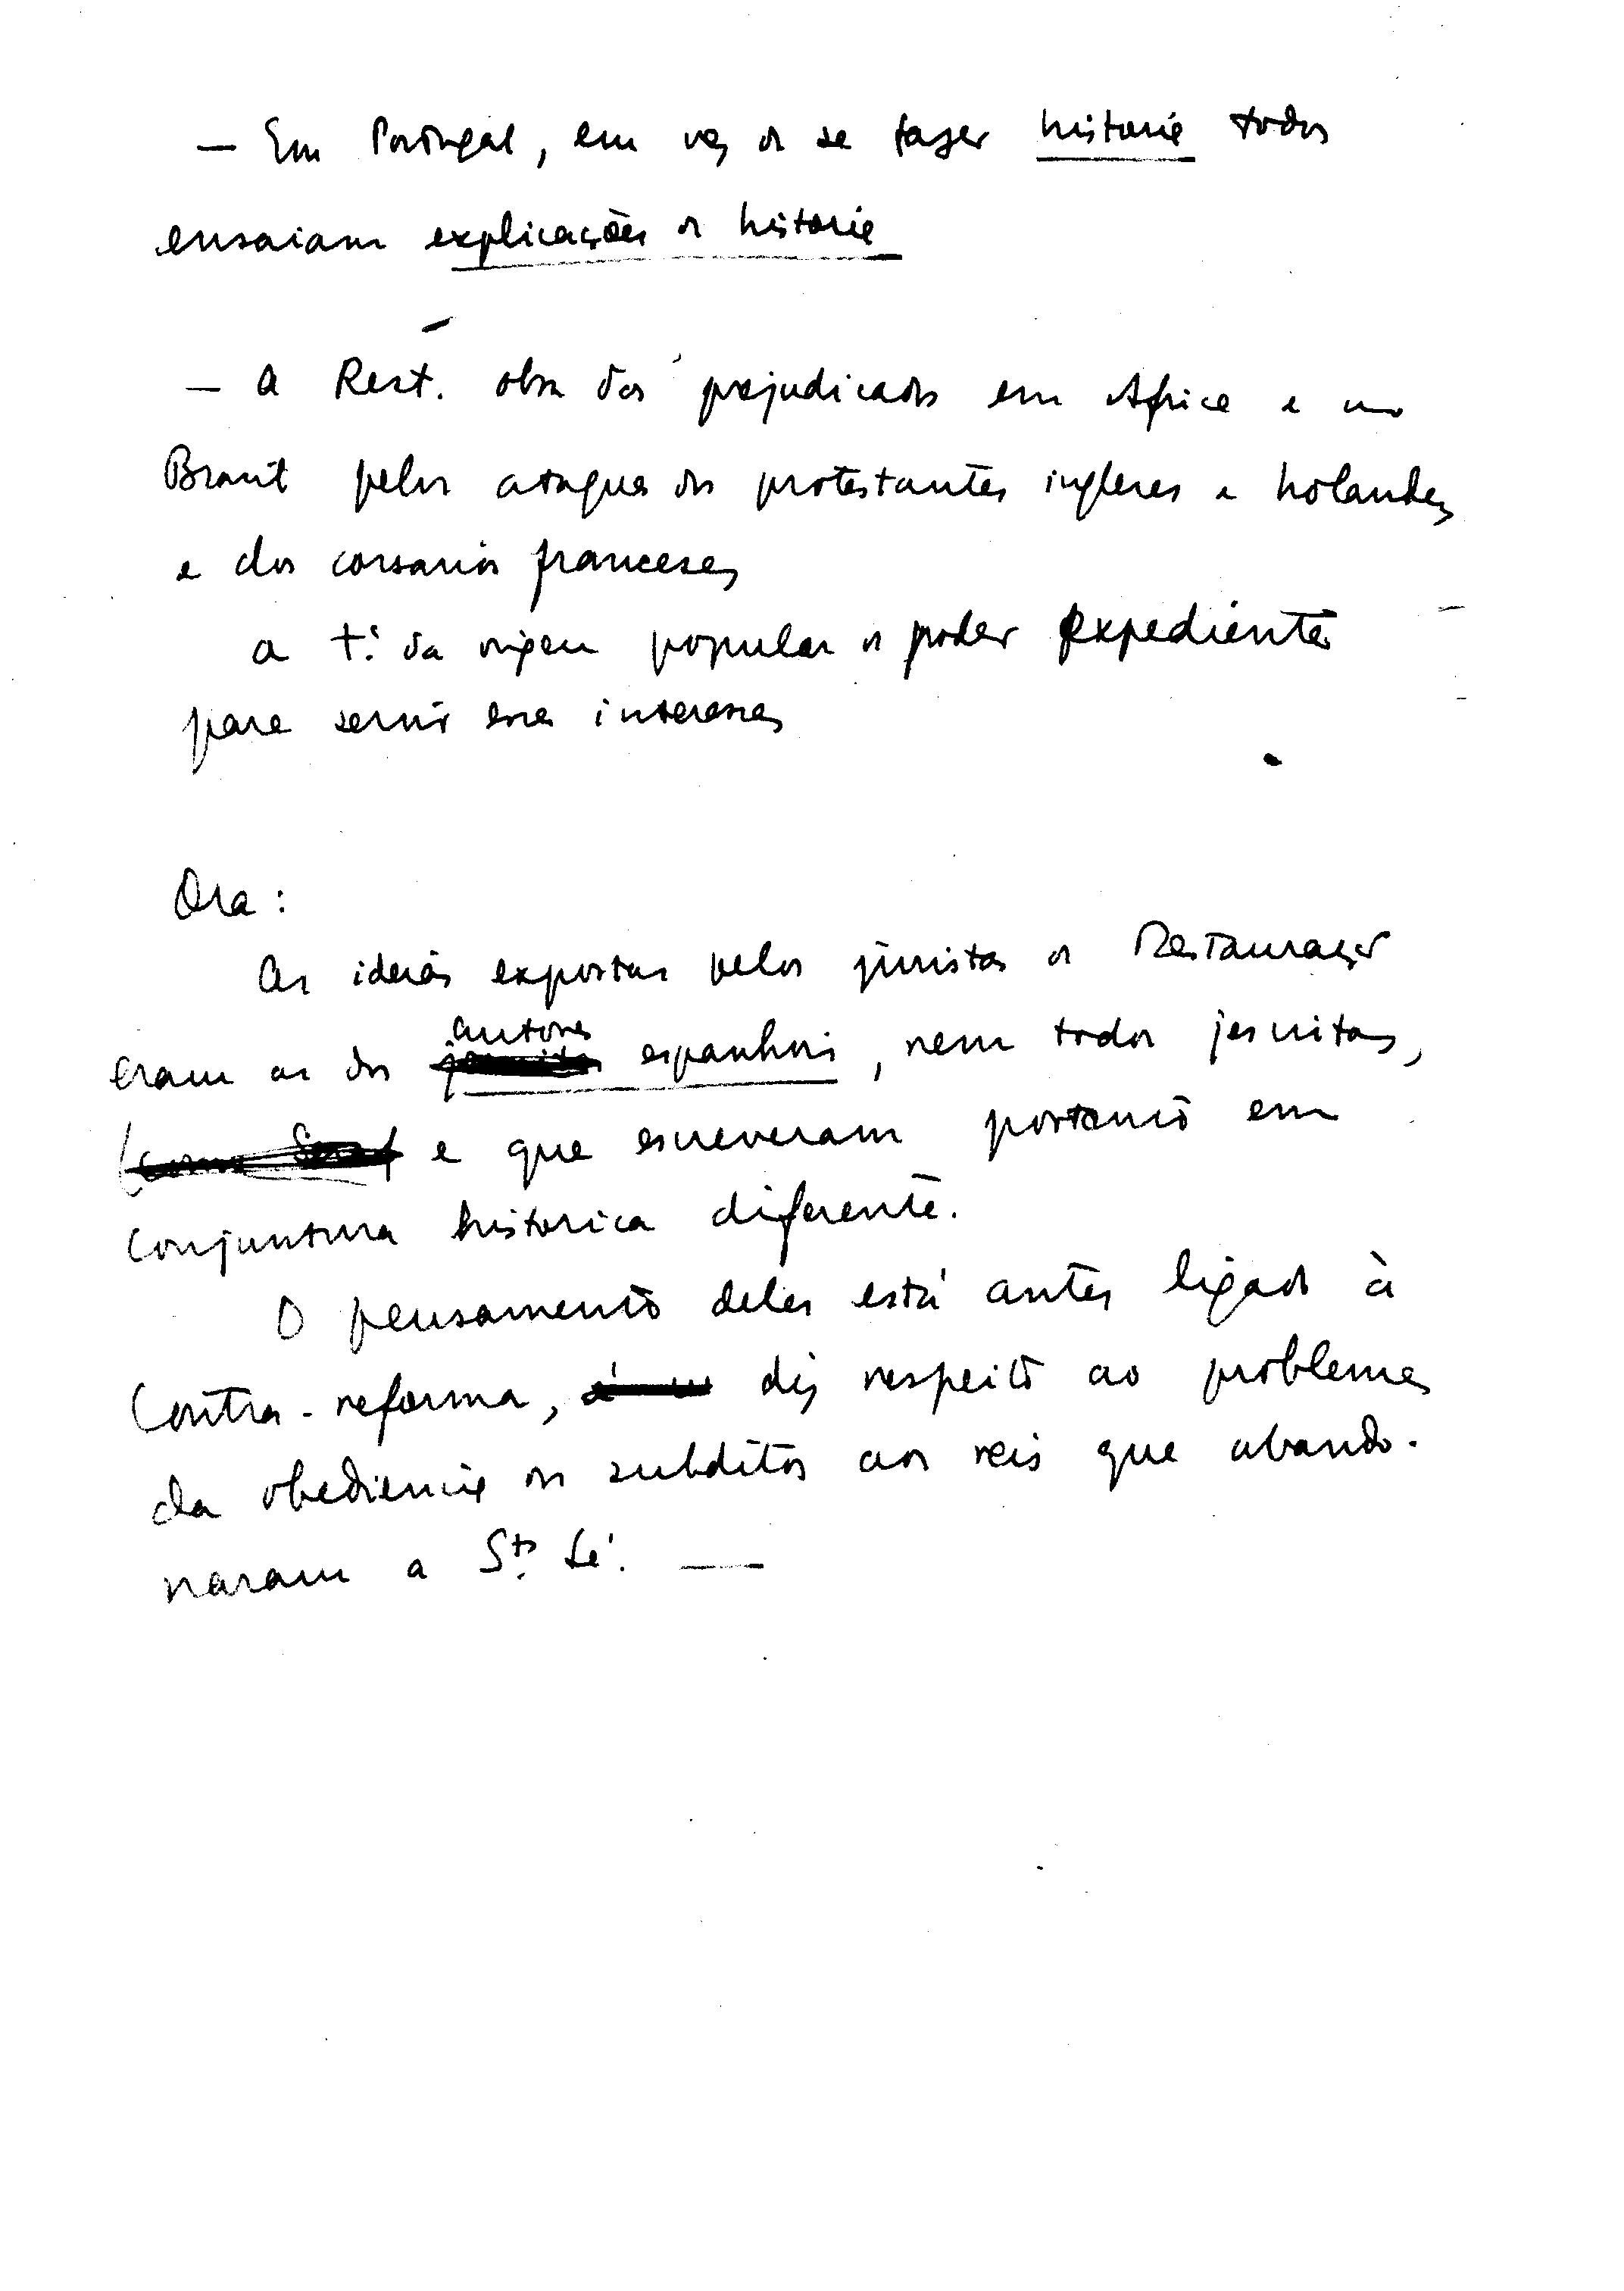 — Em Portugal, em vez de se fazer historia todos
ensaiam explicações de historia
— A Rest. obra dos prejudicados em Africa e no
Brasil pelos ataques dos protestantes ingleses e holandeses
e dos corsarios franceses
a t. da origem popular do poder expediente
para servir esses interesses
Ora:
As ideias expostas pelos juristas da Restauração
eram as dos autores espanhois, nem todos jesuitas,
e que escreveram portanto em
conjuntura historica diferente.
O pensamento deles está antes ligado à
Contra-reforma, diz respeito ao problema
da obediencia dos subditos aos reis que abando-
naram a Stª Sé. —